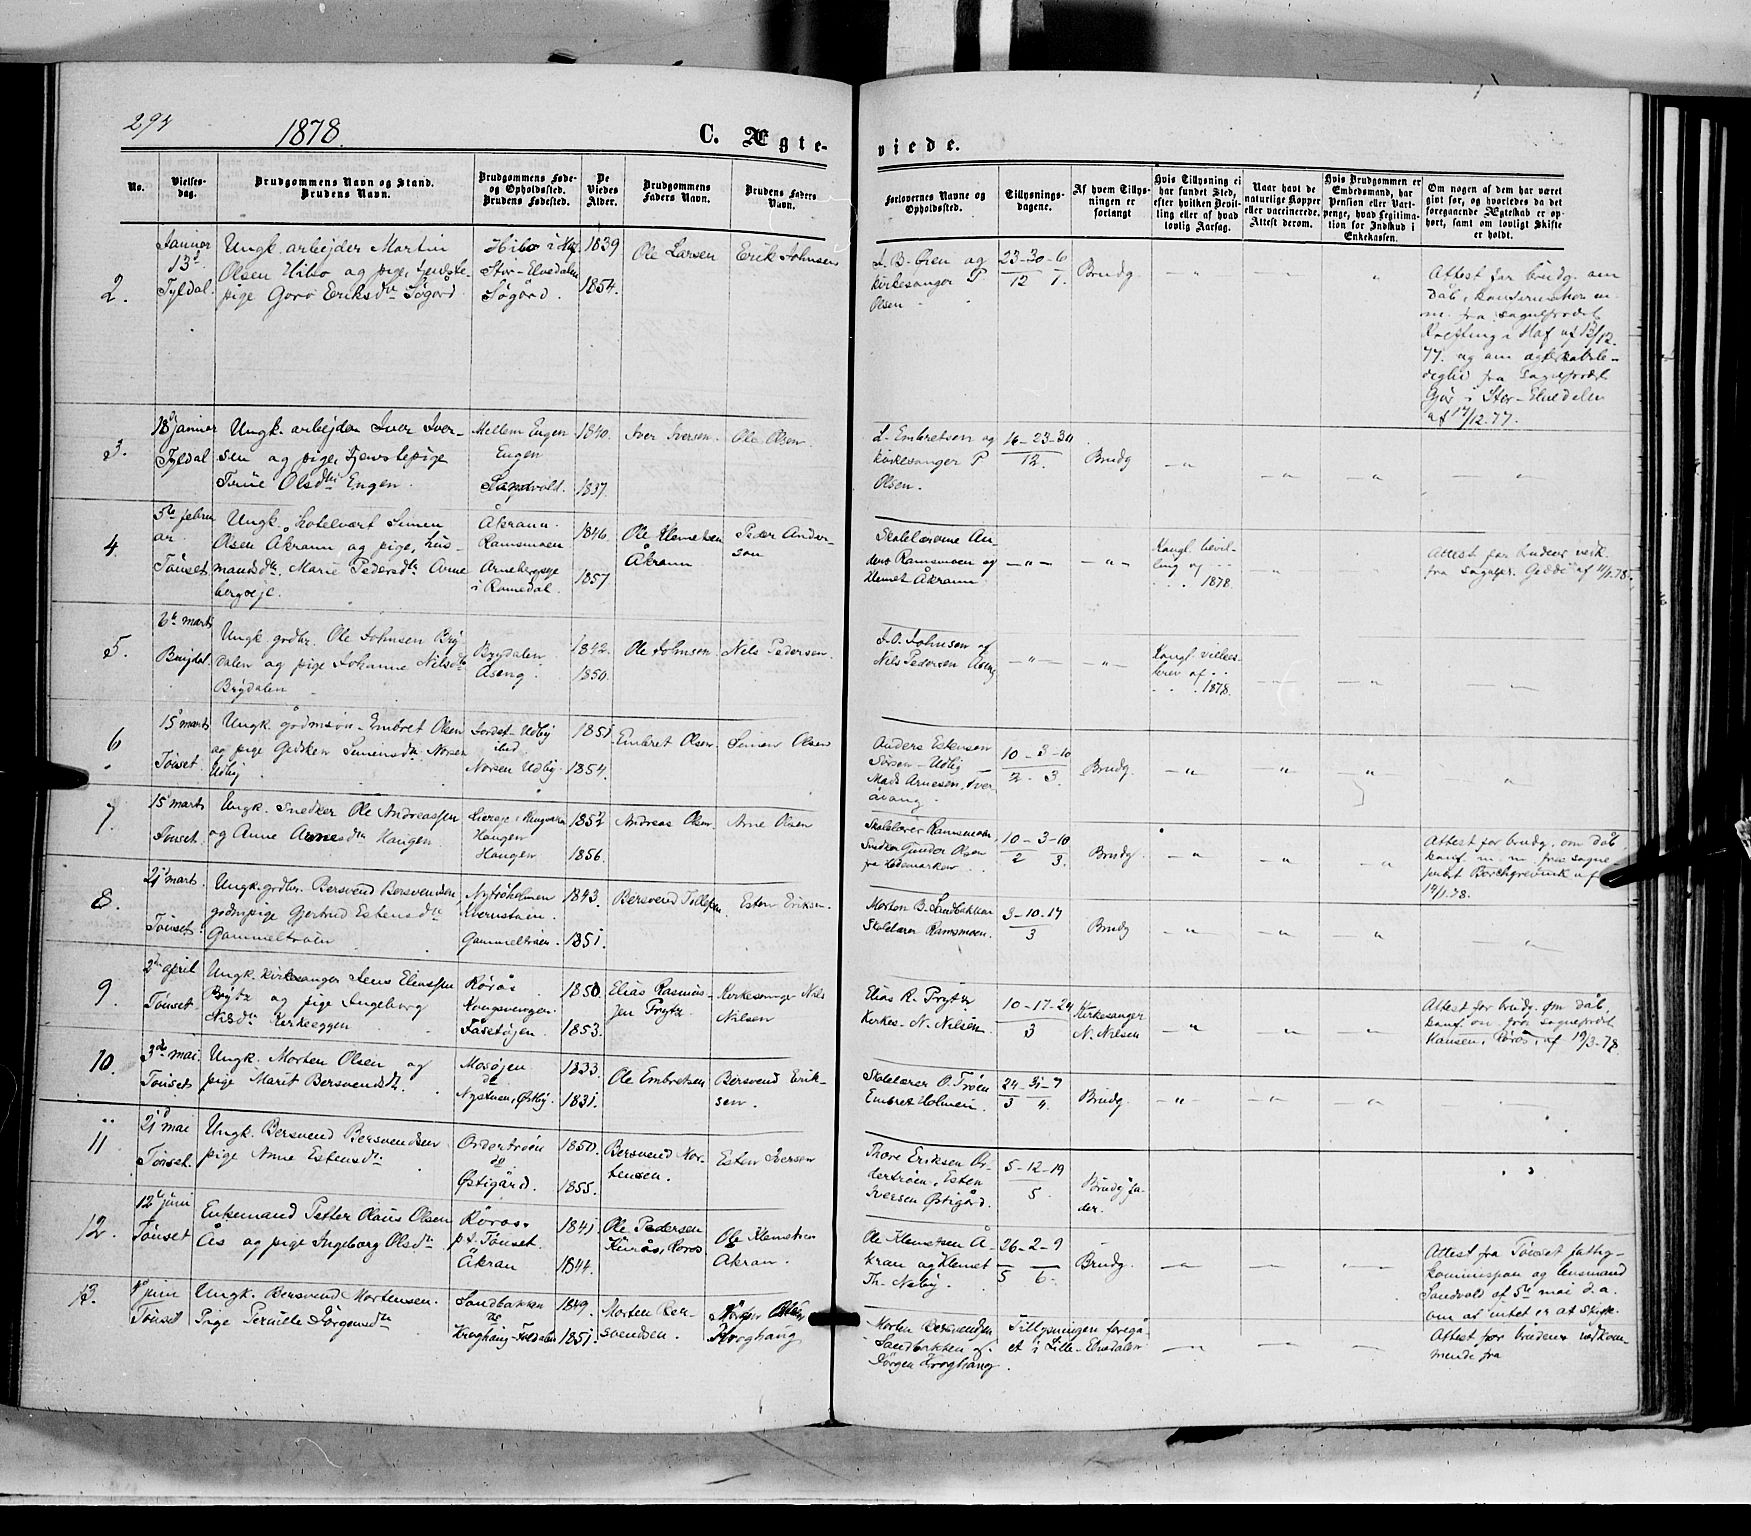 294
1878.
C. Ægte-
viede.
No.
Vielses-
dag.
Brudgommens Navn og Stand.
Brudens Navn.
Brudgommens Føde-
og Opholdssted.
Brudens Fødested.
De
Viedes
Alder.
Brudgommens
Faders Navn.
Brudens Faders
Navn.
Forlovernes Navne og
Opholdssted.
Tillysnings-
dagene.
Af hvem Tillys-
ningen er
forlangt
Hvis Tillysning ei
har fundet Sted,
efter hvilken Bevil-
ling eller af hvad
lovlig Aarsag.
Naar havt de
naturlige Kopper
eller vaccinerede.
Attest derom.
Hvis Brudgommen er
Embedsmand, har
Pension eller Vart-
penge, hvad Legitima-
tion for Indskud i
Enkekassen.
Om nogen af dem har været
gift før, og hvorledes da det
foregaaende Ægteskab er op-
hørt, samt om lovligt Skifte
er holdt.
2.
Januer
13d
Tyldal
Ungk. arbejder Martin
Olsen Hibo og pige, tjeneste-
pige Goro Eriksdtr Søgård
Hibo i
Stor-Elvedalen
Søgård.
1839
1854.
Ole Larsen
Erik Johnsen
J. B. Øien og
kirkesanger P
Olsen.
23-30-6
12 1.
Brudg
Attest for brudg. om
dåb, konfirmation m.
m. fra sognepræst
i Haf af 13/12.
77. og om ægteskabsle-
dighed fra sognepræst
i Stor-Elvedalen
af 17/12.77.
3.
18d Januer
Tyldal
Ungk. arbejder Iver Iver-
sen og pige, tjenstepige
Olsdtr Engen.
Mellem Engen
Engen
1840.
1837.
Iver Iversen.
Ole Olsen
L. Embretsen og
kirkesanger P
Olsen.
16-23-30
12.
Brudg
4.
5te febru
ar.
Tönset
Ungk. hotelvært Simen
Olsen Åkrann og pige, hus-
mandsdtr. Marie Pedersdtr Arne
bergeje.
Åkrann.
Ramsmoen
Arnebergeje
i Romedal.
1846.
1857
Ole Klemetsen
Åkrann
Peder Ander-
sen
Skolelærerne An-
ders Ramsmoen og
Klemet Åkrann.
Kongl. bevil-
ling af ..
... 1878.
Attest for bruden vedk.
fra sognepr. af 11/1.78.
5.
6te marts
Brydal.
Ungk. grdbr. Ole Johnsen Bry
dalen og pige Johanne Nilsdtr
Brydalen
Brydalen.
Åseng.
1842.
1850.
Ole Johnsen.
Nils Pedersen.
J. O. Johnsen og
Nils Pedersen Åseng
Kongl. vielses-
brev af ..
... 1878.
6
15d marts
Tönset.
Ungk. gårdmsøn Embret Olsen
og pige Gudsken Simensdtr Norsen
Udby
Udby
Norsen Udby.
1851
1854.
Embret Olsen.
Simen Olsen
Anders Estensen
Sorsen-Udby
Mads Arnesen,
10-3-10
2 3.
Brudg.
7.
15d marts
Tönset.
Ungk. Snedker Ole Andreassen
og Anne Arnesdtr Haugen.
Haugen
Haugen
1852
1856.
Andreas Olsen.
Arne Olsen
Skolelærer Ramsmoen,
Snedker Gunder Olsen
fra Hedemarken
10-3-10
2 3.
Brudg.
Attest for brudg. om dåb,
konf. m. m. fra sogne-
præst Borchgrevink af
14/1.78.
8.
21d marts.
Tönset.
Ungk. grdbr. Bersvend Bersvendsen
grdmpige Gjertrud Estensdtr
Gammeltrøen
Nytrøholmen
Kvernstuen.
Gammeltrøen.
1843.
1851.
Bersvend
Esten Eriksen.
Morten B. Sandbakken
Skolelærer Ramsmoen.
3-10-17
3
Brudg
9.
2den april
Tönset
Ungk. kirkesanger Jens Eliassen
Prytz og pige Ingeborg
Nilsdtr Kirkeeggen
Röros
Kongsvingen.
1850.
1853.
Elias Rasmus-
sen Prytz.
Kirkesanger Nils
Nilsen
Elias R. Prytz
Kirkes. N. Nilsen.
10-17-24
3
Kirkesanger
N. Nilsen
Attest for brudg. om dåb,
konf. on fra sognepræst
Hansen, Röros, af 19/3-78.
10.
3de mai
Tönset
Ungk. Morten Olsen og
pige Marit Bersvendsdtr.
Mosøjen
do
Nystuen, Østby.
1833.
1831.
Ole Embretsen
Bersvend Erik-
sen.
Skolelærer O. Trøen
Embret Holmen.
24-31-7
3 4.
Brudg.
11
21d mai
Tönset.
Ungk. Bersvend Bersvendsen
pige Anne Estensdtr
Ordertrøen
do
Østigård.
1850.
1855.
Bersvend Mor-
tensen.
Esten Iversen
Thore Eriksen Or-
dertrøen, Esten
Iversen Østigård.
5-12-19
5.
Brudgs fa-
der.
12.
12te juni
Tönset
Enkemand Petter Olaus Olsen
Ås og pige Ingeborg Olsdtr
Röros.
p.t. Tönset.
Åkran
1841.
1844.
Ole Pedersen
Kurås, Röros
Ole Klemetsen
Åkran.
Ole Klemetsen Å-
kran og Klemet
Th. Neby.
26-2-9
5 6.
Brudg.
Attest fra Tönset fattig-
kommission og lensmand
Sandvold af 5te mai d.a.
om at intet er at skifte.
13.
juni
Tönset
Ungk. Bersvend Mortensen.
Pige Pernille Jörgensdtr
Sandbakken
do
Kroghaug-Foldalen
1849.
1851.
Morten Ber-
svendsen.
Jörgen Olsen
Kroghaug
Morten Bersvendsen
Sandbakken og
Jörgen Kroghaug.
Tillysningen foregå-
et i Lille-Elvedalen
Attest for bruden vedkom-
mende fra